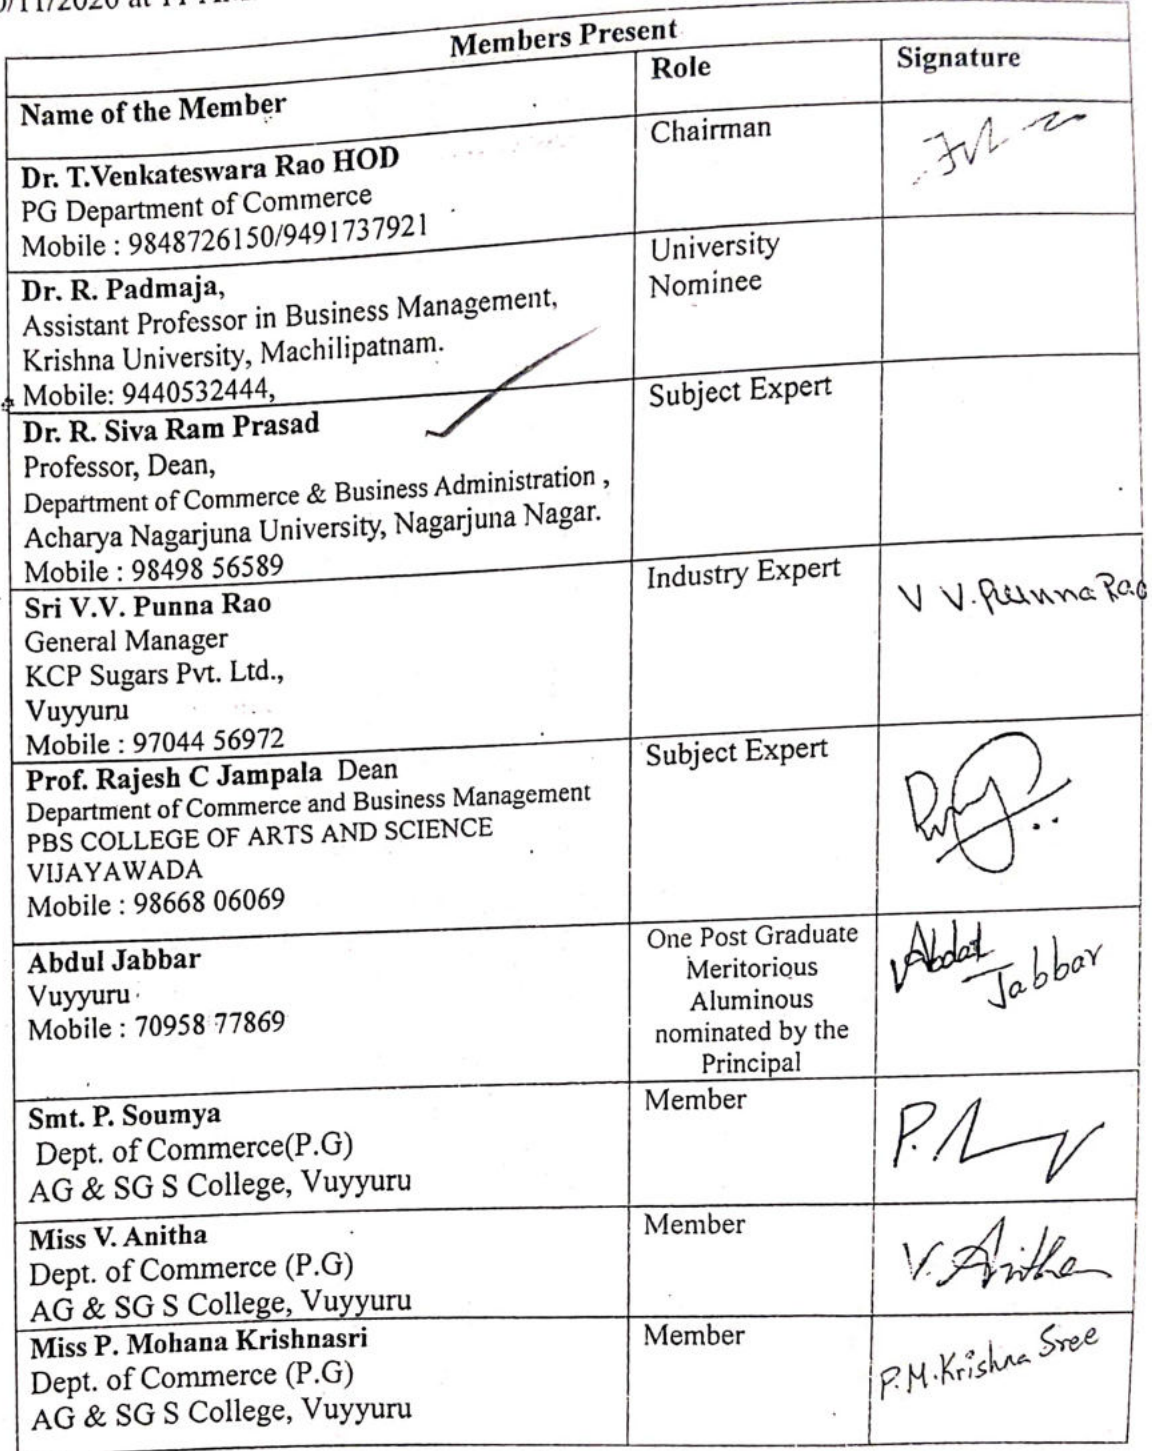 /11/2020 at 11
Members Present
Name of the Member
Role
Signature
Dr. T.Venkateswara Rao HOD
PG Department of Commerce
Mobile : 9848726150/9491737921
Chairman
Dr. R. Padmaja,
Assistant Professor in Business Management,
Krishna University, Machilipatnam.
Mobile: 9440532444,
University
Nominee
Dr. R. Siva Ram Prasad
Professor, Dean,
Department of Commerce & Business Administration ,
Acharya Nagarjuna University, Nagarjuna Nagar.
Mobile : 98498 56589
Subject Expert
Sri V.V. Punna Rao
General Manager
KCP Sugars Pvt. Ltd.,
Vuyyuru
Mobile : 97044 56972
Industry Expert
V V. Punna Rao
Prof. Rajesh C Jampala Dean
Department of Commerce and Business Management
PBS COLLEGE OF ARTS AND SCIENCE
VIJAYAWADA
Mobile : 98668 06069
Subject Expert
Abdul Jabbar
Vuyyuru
Mobile : 70958 77869
One Post Graduate
Meritorious
Aluminous
nominated by the
Principal
Abdul
Jabbar
Smt. P. Soumya
Dept. of Commerce(P.G)
AG & SG S College, Vuyyuru
Member
Miss V. Anitha
Dept. of Commerce (P.G)
AG & SG S College, Vuyyuru
Member
V. Anitha
Miss P. Mohana Krishnasri
Dept. of Commerce (P.G)
AG & SG S College, Vuyyuru
Member
P.M.Krishna Sree